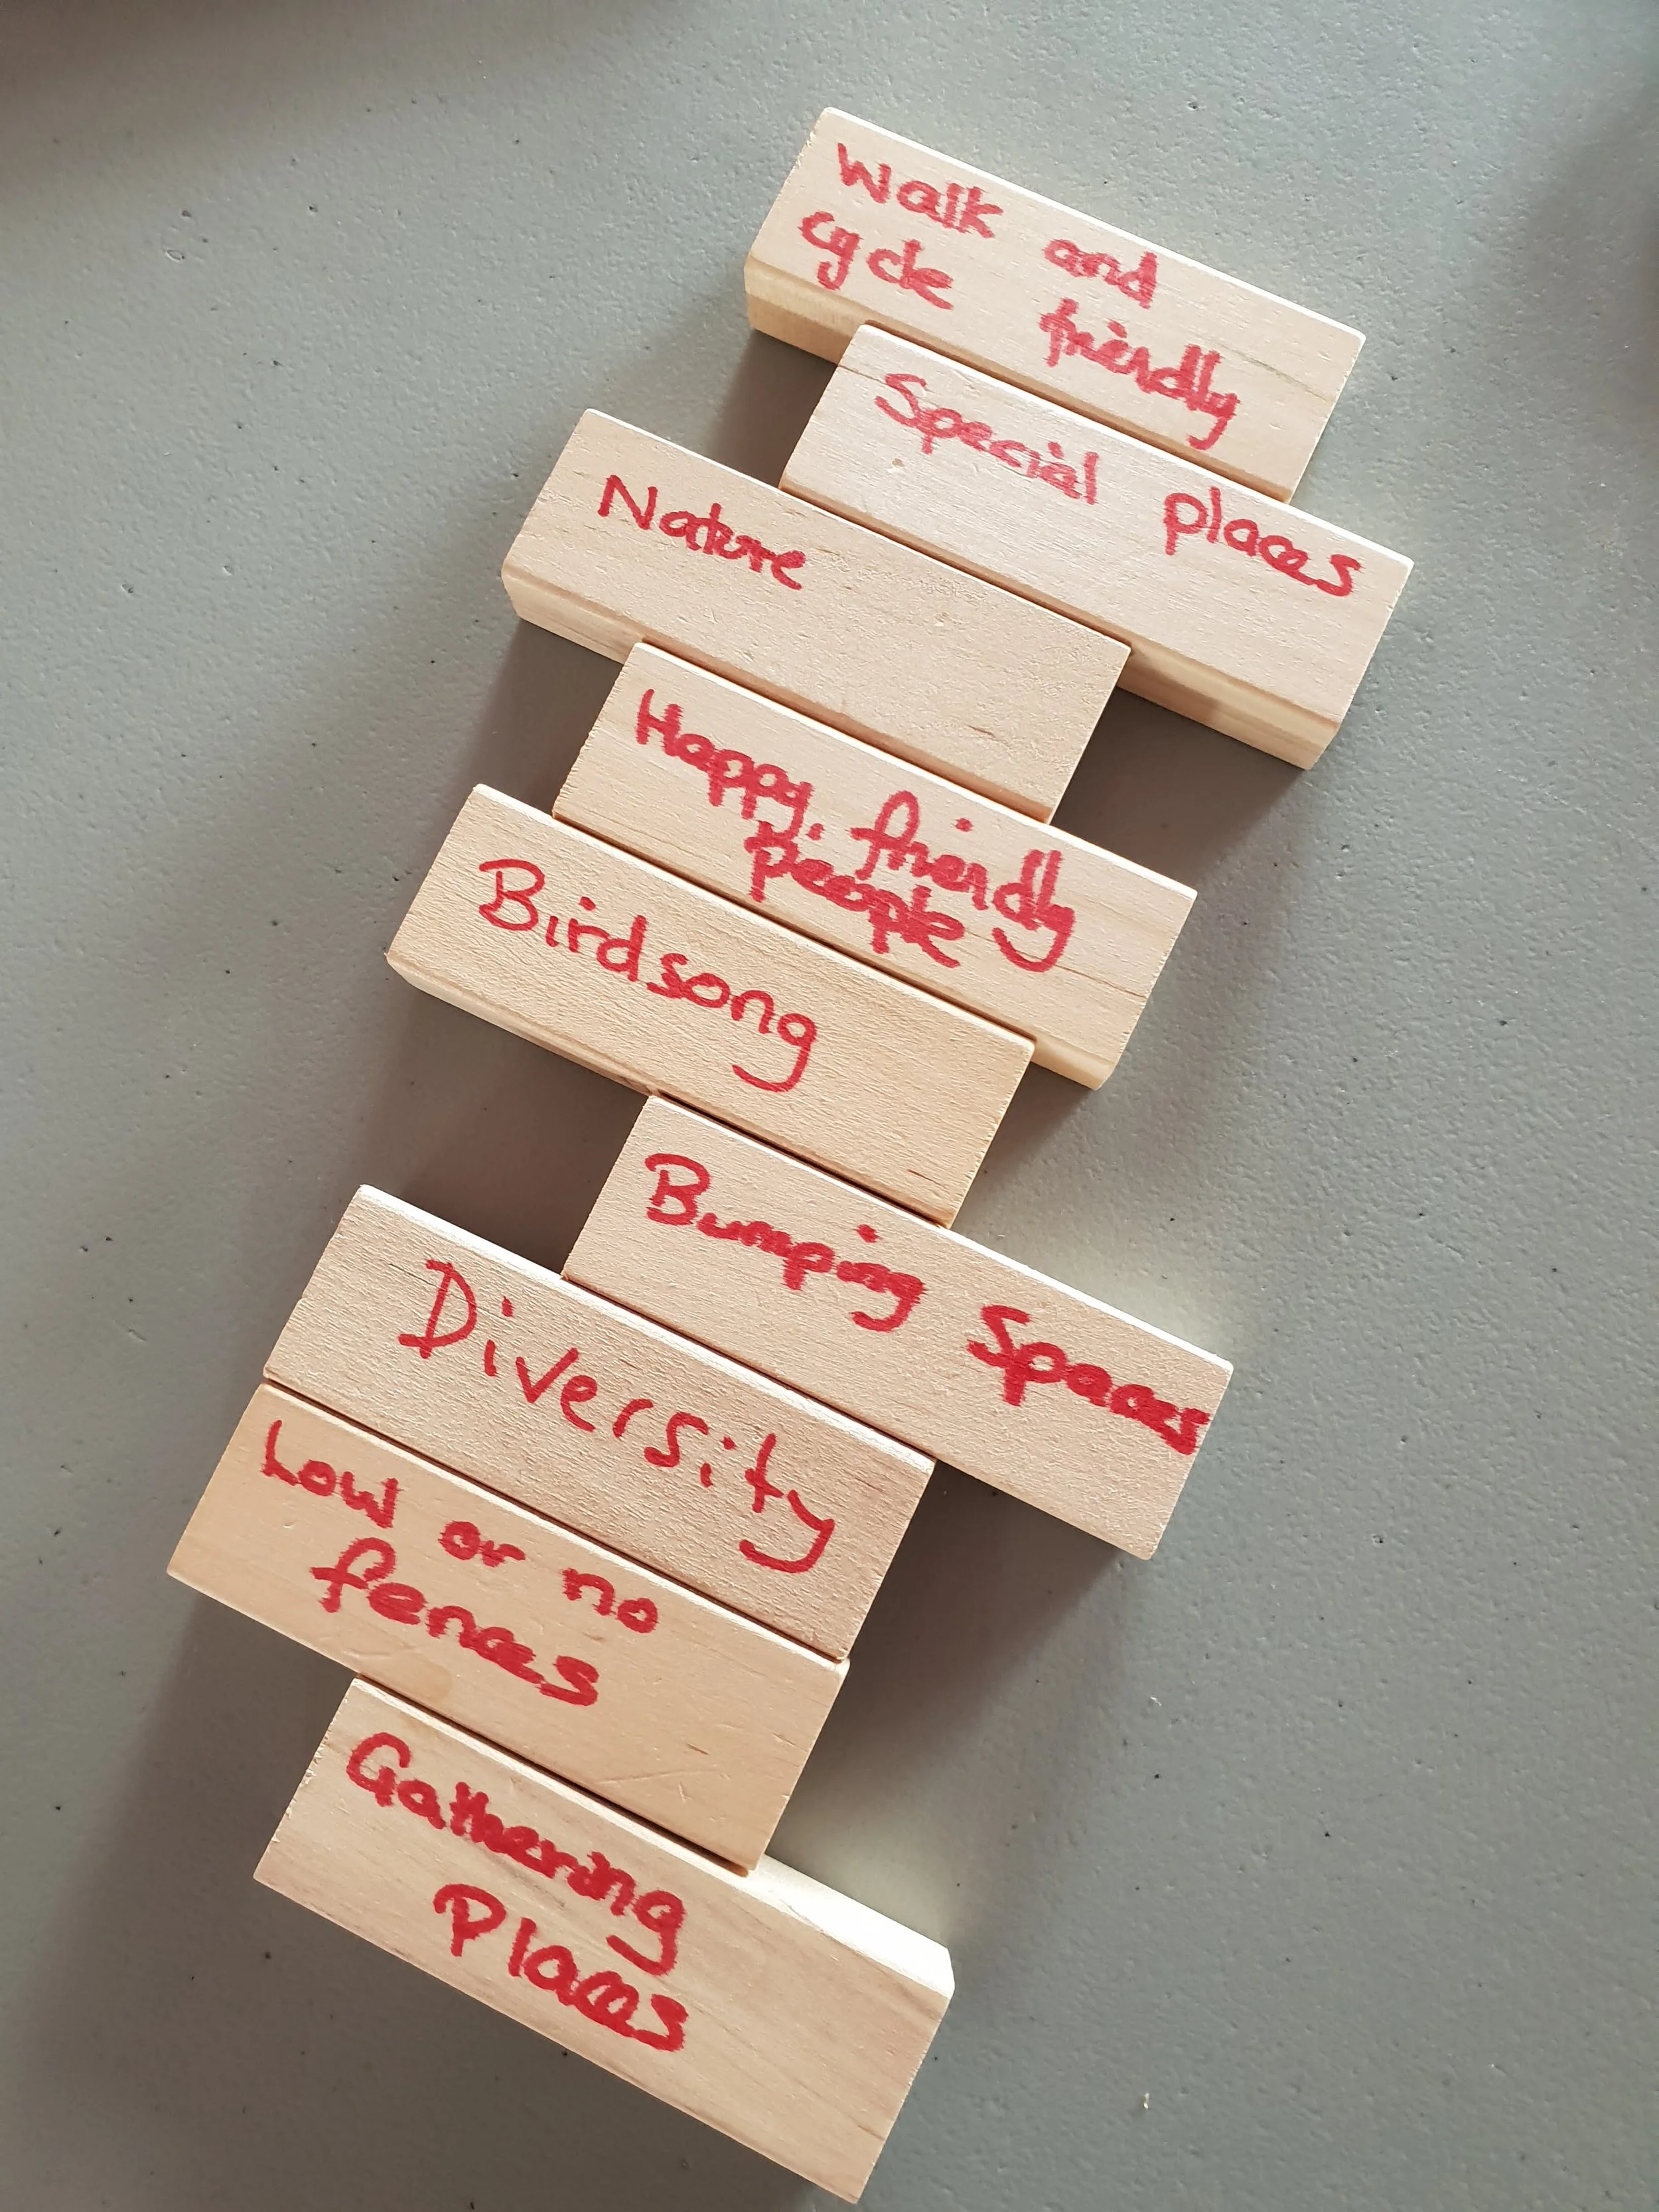 Walk and
cycle friendly
Special places
Nature
Happy, friendly
people
Birdsong
Bumping Spaces
Diversity
Low or no
fences
Gathering
Places